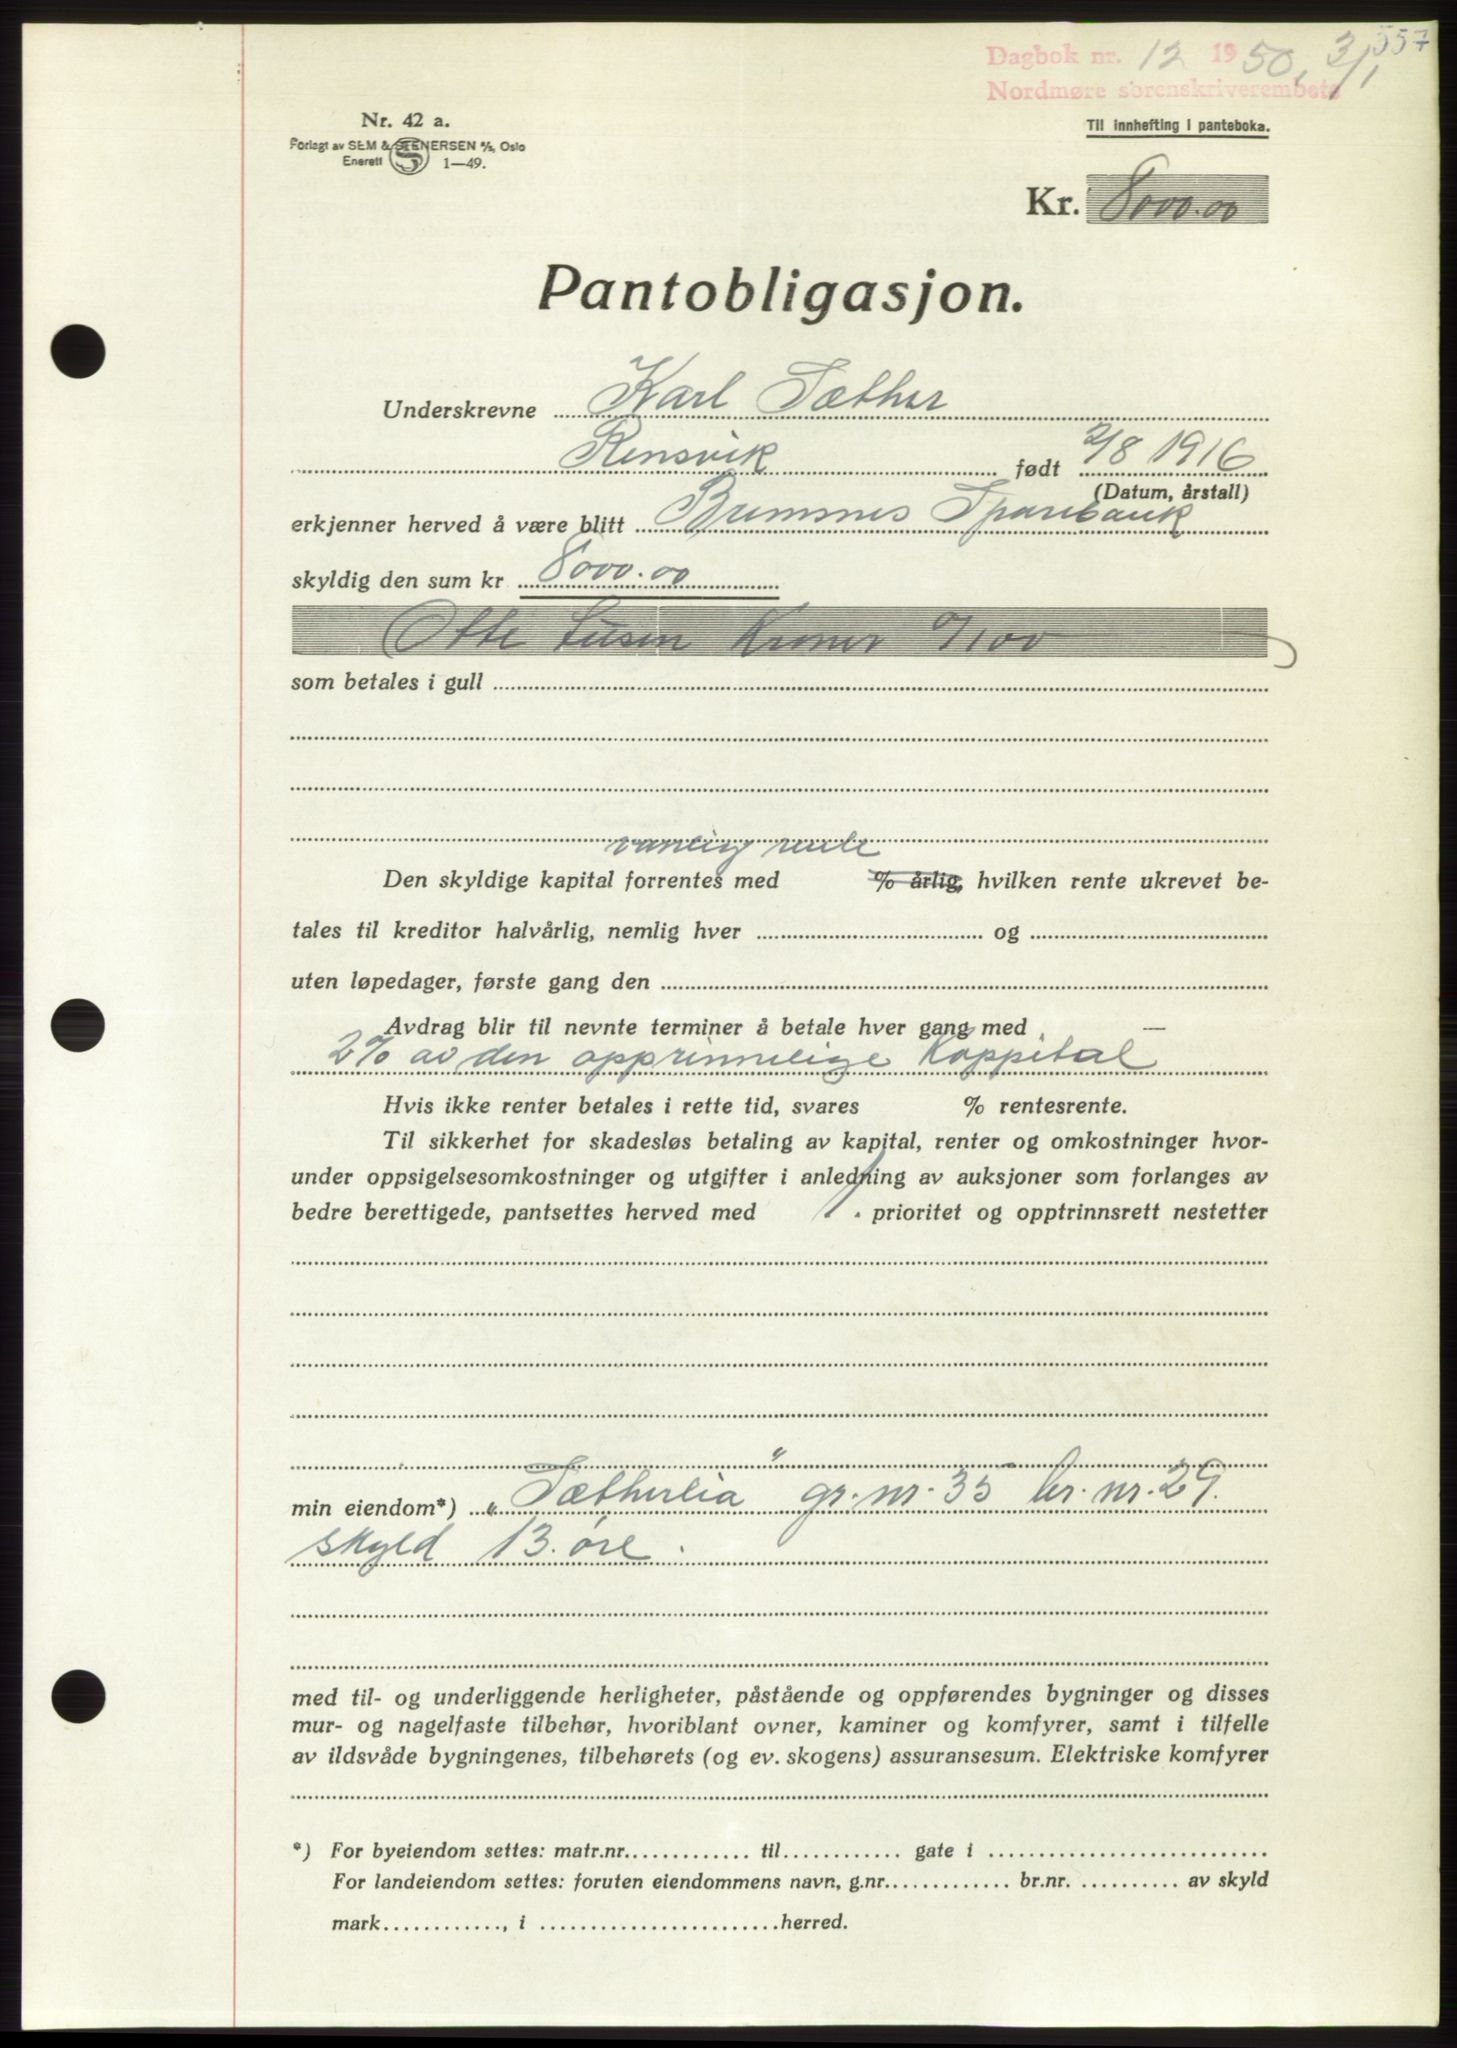 557
Dagbok nr. 12 1950, 3/1
Nordmøre sorenskriverembete
Til innhefting i panteboka.
Nr. 42 a.
Forlagt av SEM & STENERSEN A/S, Oslo
Enerett 1—49.
Kr. 8000.00
Pantobligasjon.
Underskrevne Karl Sæther
Rensvik født 2/8 1916
(Datum, årstall)
erkjenner herved å være blitt Bremsnes Sparebank
skyldig den sum kr 8000.00
Otte tusen Kroner 0/100
som betales i gull
vanlig rente
Den skyldige kapital forrentes med % årlig, hvilken rente ukrevet be-
tales til kreditor halvårlig, nemlig hver og
uten løpedager, første gang den
Avdrag blir til nevnte terminer å betale hver gang med —
2% av den opprinnelige Kappital
Hvis ikke renter betales i rette tid, svares % rentesrente.
Til sikkerhet for skadesløs betaling av kapital, renter og omkostninger hvor-
under oppsigelsesomkostninger og utgifter i anledning av auksjoner som forlanges av
bedre berettigede, pantsettes herved med 1. prioritet og opptrinnsrett nestetter
min eiendom*) „Sætherlia" gr. nr. 35 br. nr. 29.
skyld 13. øre.
med til- og underliggende herligheter, påstående og oppførendes bygninger og disses
mur- og nagelfaste tilbehør, hvoriblant ovner, kaminer og komfyrer, samt i tilfelle
av ildsvåde bygningenes, tilbehørets (og ev. skogens) assuransesum. Elektriske komfyrer
*) For byeiendom settes: matr.nr. til gate i
For landeiendom settes: foruten eiendommens navn, g.nr. br.nr. av skyld
mark , i herred.